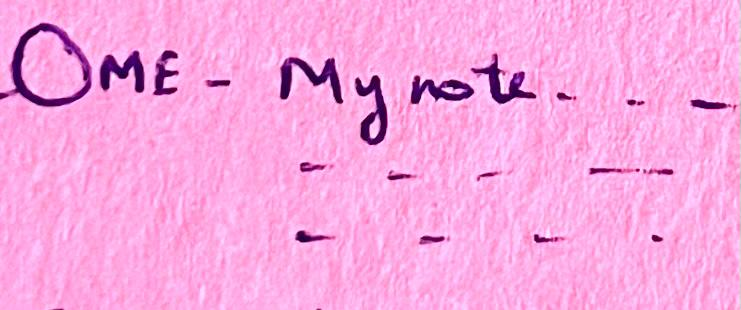 OME - My note. - -
- - - -
- - - .